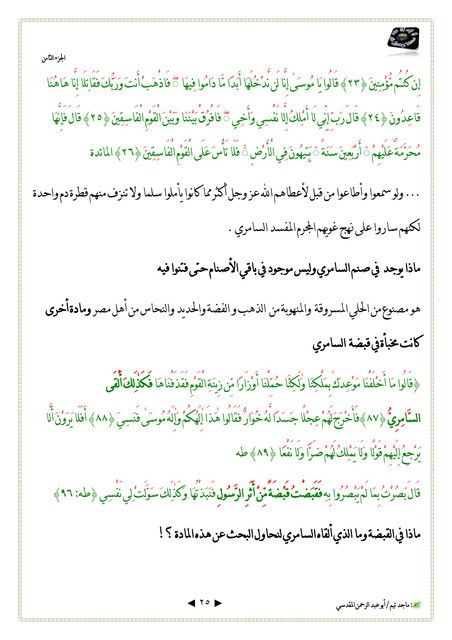 الجزء الثامن
إِن كُنتُم مُّؤْمِنِينَ ﴿٢٣﴾ قَالُوا يَا مُوسَىٰ إِنَّا لَن نَّدْخُلَهَا أَبَدًا مَّا دَامُوا فِيهَا ۖ فَاذْهَبْ أَنتَ وَرَبُّكَ فَقَاتِلَا إِنَّا هَاهُنَا
قَاعِدُونَ ﴿٢٤﴾ قَالَ رَبِّ إِنِّي لَا أَمْلِكُ إِلَّا نَفْسِي وَأَخِي ۖ فَافْرُقْ بَيْنَنَا وَبَيْنَ الْقَوْمِ الْفَاسِقِينَ ﴿٢٥﴾ قَالَ فَإِنَّهَا
مُحَرَّمَةٌ عَلَيْهِمْ ۛ أَرْبَعِينَ سَنَةً ۛ يَتِيهُونَ فِي الْأَرْضِ ۚ فَلَا تَأْسَ عَلَى الْقَوْمِ الْفَاسِقِينَ ﴿٢٦﴾ المائدة
... ولو سمعوا وأطاعوا من قبل لأعطاهم الله عز وجل أكثر مما كانوا يأملوا سلما ولا تنزف منهم قطرة دم واحدة
لكنهم ساروا على نهج غويهم المجرم المفسد السامري .
ماذا يوجد في صنم السامري وليس موجود في باقي الأصنام حتى فتنوا فيه
هو مصنوع من الحلي المسروقة والمنهوبة من الذهب و الفضة والحديد والنحاس من أهل مصر ومادة أخرى
كانت مخبأة في قبضة السامري
﴿قَالُوا مَا أَخْلَفْنَا مَوْعِدَكَ بِمَلْكِنَا وَلَٰكِنَّا حُمِّلْنَا أَوْزَارًا مِّن زِينَةِ الْقَوْمِ فَقَذَفْنَاهَا فَكَذَٰلِكَ أَلْقَى
السَّامِرِيُّ ﴿٨٧﴾ فَأَخْرَجَ لَهُمْ عِجْلًا جَسَدًا لَّهُ خُوَارٌ فَقَالُوا هَٰذَا إِلَٰهُكُمْ وَإِلَٰهُ مُوسَىٰ فَنَسِيَ ﴿٨٨﴾ أَفَلَا يَرَوْنَ أَلَّا
يَرْجِعُ إِلَيْهِمْ قَوْلًا وَلَا يَمْلِكُ لَهُمْ ضَرًّا وَلَا نَفْعًا ﴿٨٩﴾ طه
قَالَ بَصُرْتُ بِمَا لَمْ يَبْصُرُوا بِهِ فَقَبَضْتُ قَبْضَةً مِّنْ أَثَرِ الرَّسُولِ فَنَبَذْتُهَا وَكَذَٰلِكَ سَوَّلَتْ لِي نَفْسِي ﴿طه: ٩٦﴾
ماذا في القبضة وما الذي ألقاه السامري لنحاول البحث عن هذه المادة ؟ !
ماجد تيم / أبو عبد الرحمن المقدسي
٢٥